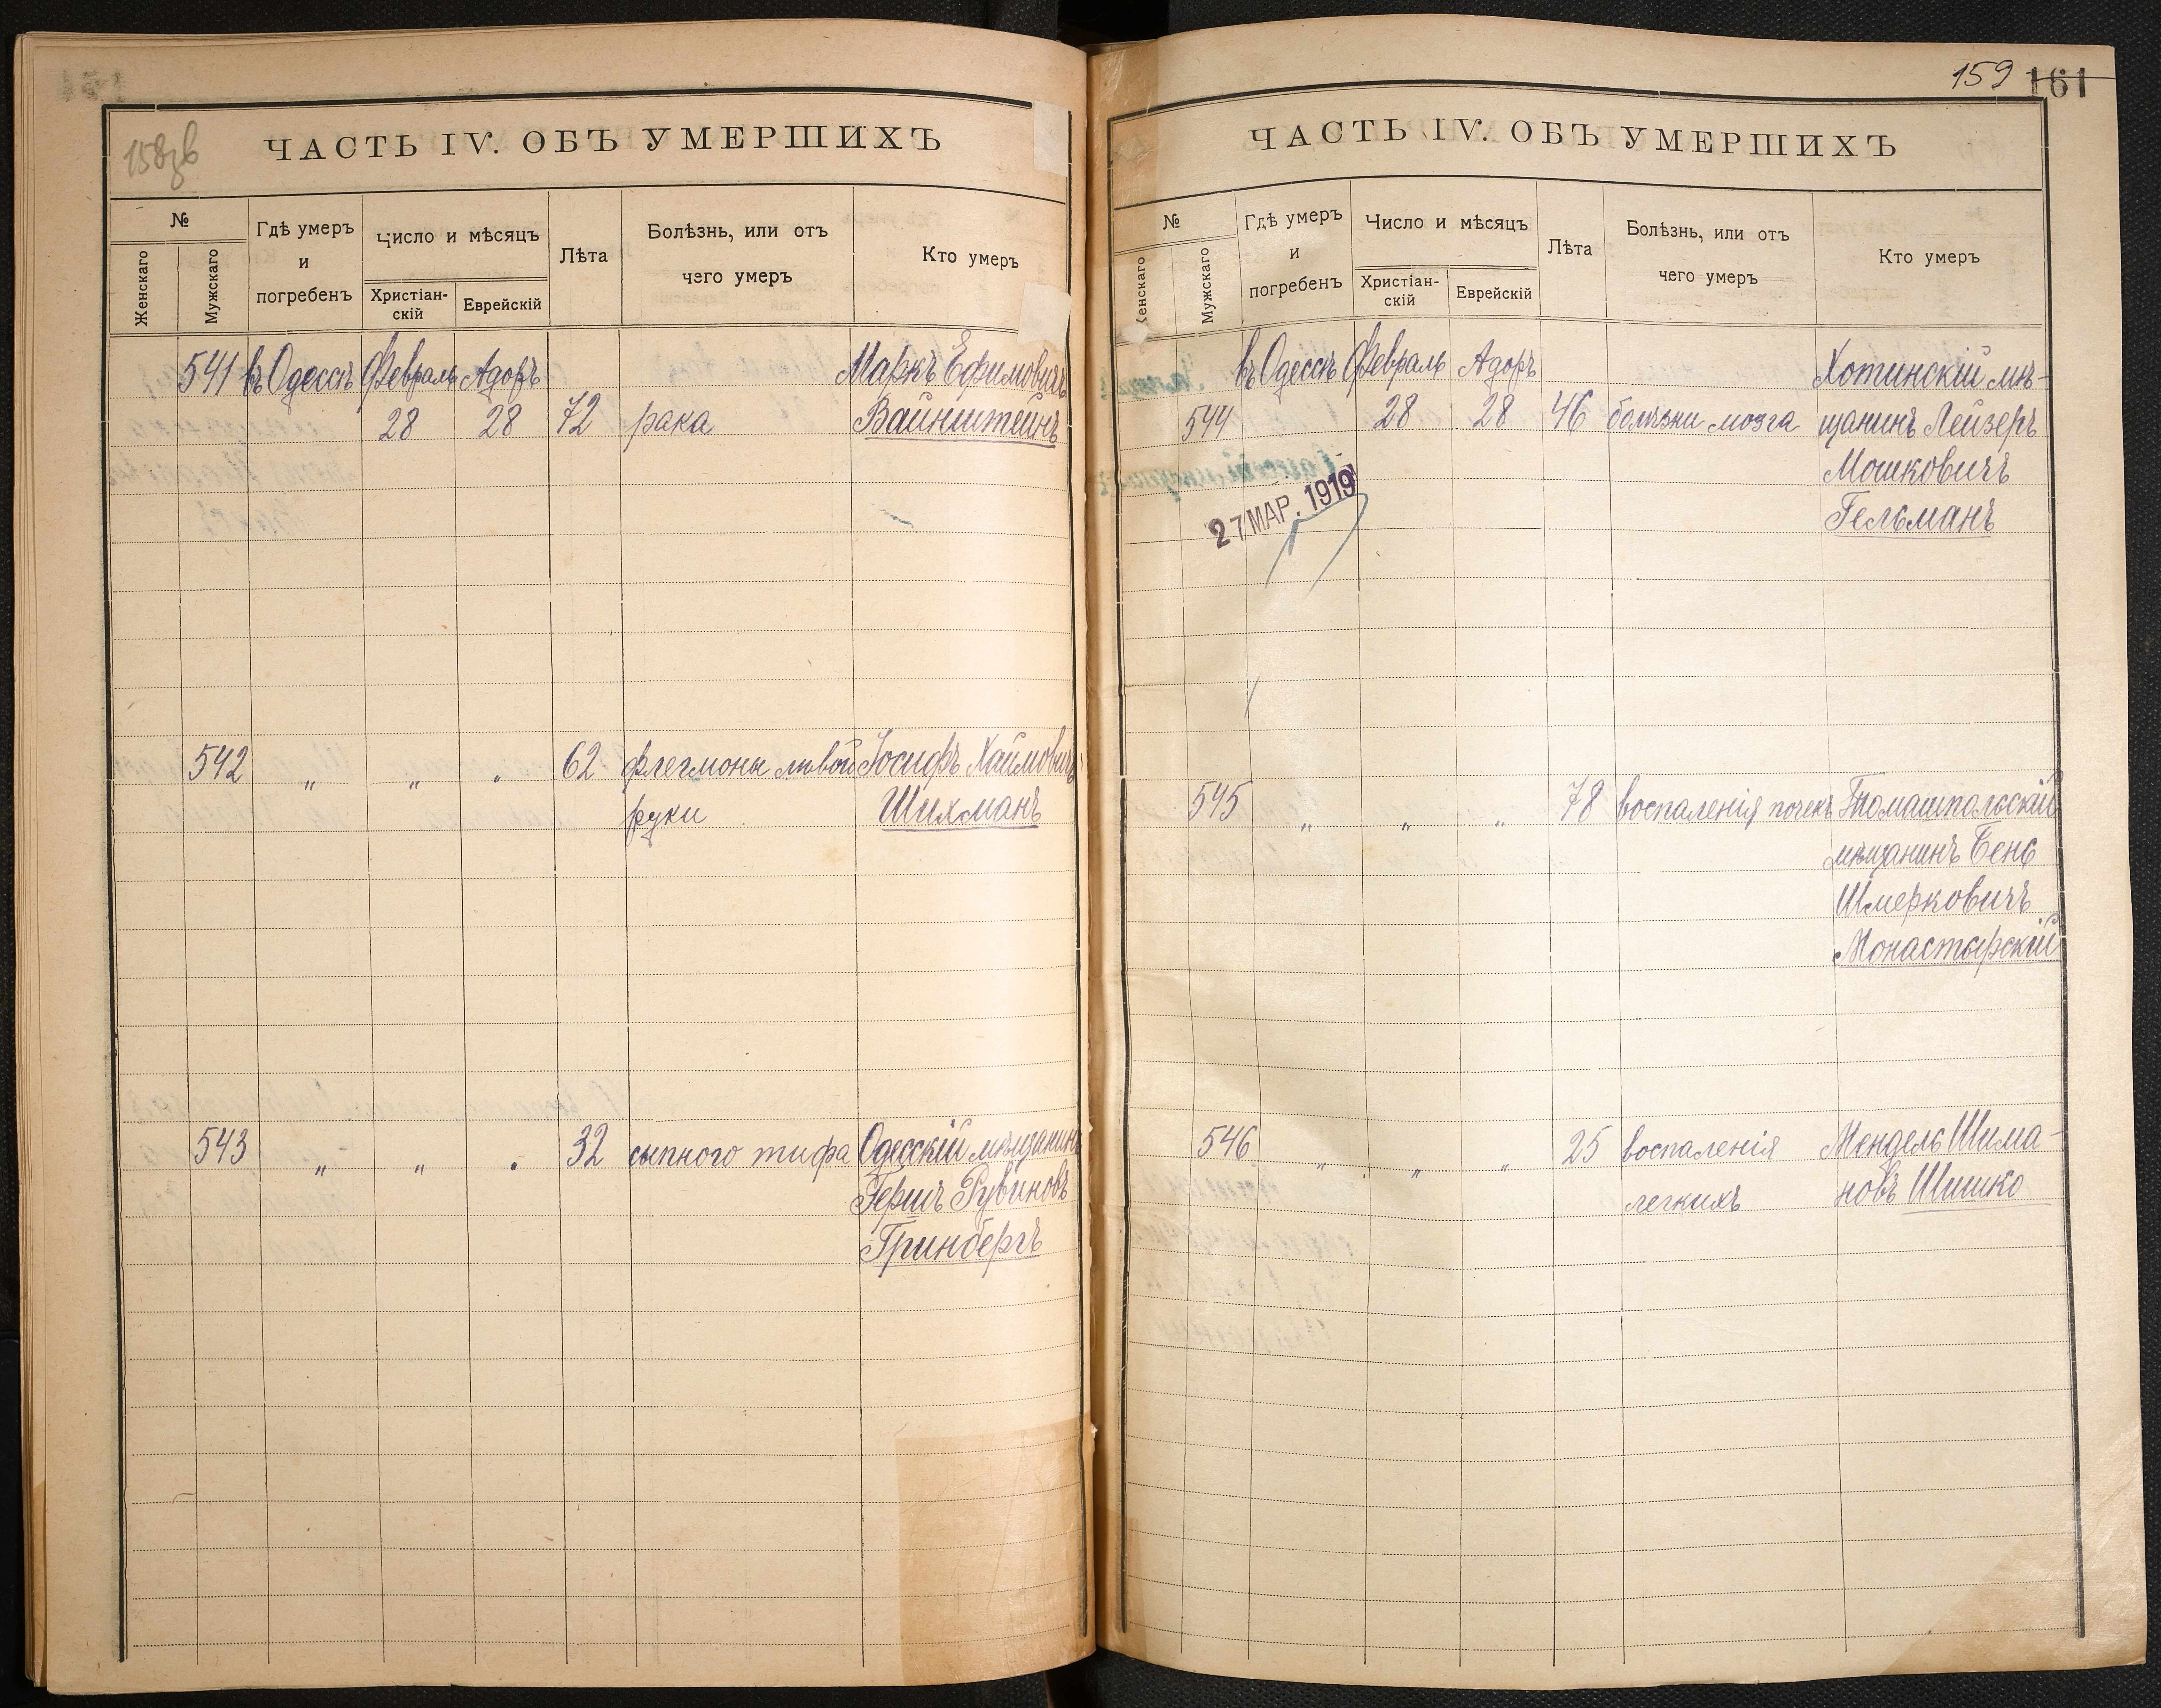 158зв
ЧАСТЬ IV. ОБЪ УМЕРШИХЪ
№
Женскаго
Мужскаго
Гдѣ умеръ
и
погребенъ
Число и мѣсяцъ
Христіан-
скій
Еврейскій
Лѣта
Болѣзнь, или отъ
чего умеръ
Кто умеръ
541 въ Одессѣ Февраль Адоръ Маркъ Ефимовичъ
28 28 72 рака Вайнштейнъ
542 " " " 62 флегмоны лѣвой Іосифъ Хаимовичъ
руки Шихманъ
543 " " " 32 сыпного тифа Одесскій мѣщанинъ
Гершъ Рувиновъ
Гринбергъ
159 161
ЧАСТЬ IV. ОБЪ УМЕРШИХЪ
№
Женскаго
Мужскаго
Гдѣ умеръ
и
погребенъ
Число и мѣсяцъ
Христіан-
скій
Еврейскій
Лѣта
Болѣзнь, или отъ
чего умеръ
Кто умеръ
въ Одессѣ Февраль Адоръ Хотинскій мѣ-
544 28 28 46 болѣзни мозга щанинъ Лейзеръ
Мошковичъ
27 МАР. 1919 Гельманъ
545 " " " 78 воспаленія почекъ Томашпольскій
мѣщанинъ Бенс
Шмерковичъ
Монастырскій
546 " " " 25 воспаленія Мендель Шима-
легкихъ новъ Шишко